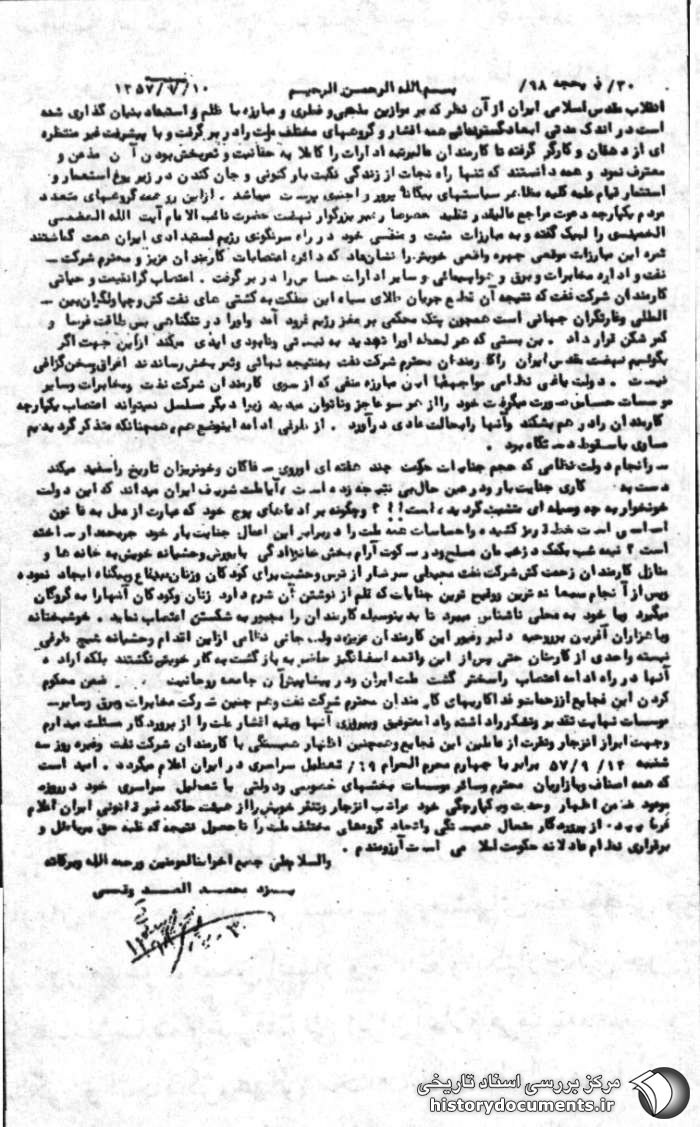 ۳۰/ ذیحجه ۹۸/ بسم الله الرحمن الرحیم ۱۳۵۷/۹/۱۰
انقلاب مقدس اسلامی ایران از آن نظر که بر موازین مذهبی و فطری و مبارزه با ظلم و استبداد بنیان گذاری شده
است در اندک مدتی ابعاد گسترده‌ای همه اقشار و گروههای مختلف ملت را در بر گرفت و با پیشرفت غیر منتظره
ای از دهقان و کارگر گرفته تا کارمندان عالیرتبه ادارات را کاملا به حقانیت و ثمربخش بودن آن مذعن و
معترف نمود و همه دانستند که تنها راه نجات از زندگی نکبت بار کنونی و جان کندن در زیر یوغ استعمار و
استثمار قیام علیه کلیه مظاهر سیاستهای بیگانه پرور و اجنبی پرست میباشد . از این رو همه گروههای متعدد
مردم یکپارچه دعوت مراجع عالیقدر تقلید خصوصا رهبر بزرگوار نهضت حضرت نائب الامام آیت الله العظمی
الخمینی را لبیک گفته و به مبارزات مثبت و منفی خود در راه سرنگونی رژیم استبدادی ایران همت گماشتند
ثمره این مبارزات موقعی چهره واقعی خویش را نشان داد که دائره اعتصابات کارمندان عزیز و محترم شرکت -
نفت و اداره مخابرات و برق و هواپیمائی و سایر ادارات حساس را در بر گرفت . اعتصاب گرانقیمت و حیاتی
کارمندان شرکت نفت که نتیجه آن قطع جریان طلای سیاه این مملکت به کشتی های نفت کش چپاولگران بین -
المللی و غارتگران جهانی است همچون پتک محکمی بر مغز رژیم فرود آمد و او را در تنگناهی بس طاقت فرسا و
کمر شکن قرار داد . بن بستی که هر لحظه او را تهدید به نیستی و نابودی ابدی میکند از این جهت اگر
بگوئیم نهضت مقدس ایران را کارمندان محترم شرکت نفت به نتیجه نهائی و ثمر بخش رساندند اغراق و سخن گزافی
نیست . دولت یاغی نظامی مواجهه با این مبارزه منفی که از سوی کارمندان شرکت نفت و مخابرات و سایر
موسسات حساس صورت میگرفت خود را از هر سو عاجز و ناتوان میدید زیرا دیگر مسلسل نمیتواند اعتصاب یکپارچه
کارمندان را در هم بشکند و آنها را بحالت عادی در آورد . از طرفی ادامه اینوضع هم همچنانکه متذکر گردیدیم
مساوی با سقوط دستگاه بود .
سرانجام دولت نظامی که حجم جنایات حکومت چند هفته ای او روی سفاکان و خونریزان تاریخ را سفید میکند
دست به کاری جنایت بار و در عین حال بی نتیجه زده است ، آیا ملت شریف ایران میداند که این دولت
خونخوار به چه وسیله ای متشبث گردیده است !! ؟ و چگونه بر ادعاهای پوچ خود که عبارت از عمل به قانون
اساسی است خط قرمز کشیده و احساسات همه ملت را در برابر این اعمال جنایت بار خود جریحه دار ساخته
است ؟ نیمه شب بکمک دژخیمان مسلح و در سکوت آرام بخش خانوادگی با یورش وحشیانه خویش به خانه ها و
منازل کارمندان زحمت کش شرکت نفت محیطی سرشار از ترس و وحشت برای کودکان و زنان بیدفاع و بیگناه ایجاد نموده
و پس از آن انجام سبعانه ترین و وقیح ترین جنایات که قلم از نوشتن آن شرم دارد زنان و کودکان آنها را به گروگان
میگیرد و با خود به محلی ناشناس میبرد تا بدینوسیله کارمندان را مجبور به شکستن اعتصاب نماید . خوشبختانه
و با هزاران آفرین بر روحیه دلیر و غیور این کارمندان عزیز دولت جانی نظامی از این اقدام وحشیانه هیچ طرفی
نبسته و احدی از کارمندان حتی پس از این واقعه اسفانگیز حاضر به بازگشت به کار خویش نگشتند بلکه اراده
آنها در راه ادامه اعتصاب راسختر گشت ملت ایران و در پیشاپیش آن جامعه روحانیت ضمن محکوم
کردن این فجایع از زحمات و فداکاریهای کارمندان محترم شرکت نفت و هم چنین شرکت مخابرات و برق و سایر -
موسسات نهایت تقدیر و تشکر را داشته و ادامه توفیق و پیروزی آنها و بقیه اقشار ملت را از پروردگار مسئلت میدارم
و جهت ابراز انزجار و نفرت از عاملین این فجایع و همچنین اظهار همبستگی با کارمندان شرکت نفت و غیره روز سه
شنبه ۵۷/۹/۱۴ برابر با چهارم محرم الحرام ۹۹/ تعطیل سراسری در ایران اعلام میگردد . امید است
که همه اصناف و بازاریان محترم و سائر موسسات بخشهای خصوصی و دولتی با تعطیل سراسری خود در روز
موعود ضمن اظهار وحدت و یکپارچگی خود مراتب انزجار و تنفر خویش را از هیئت حاکمه غیر قانونی ایران اعلام
فرمایید . از پروردگار متعال همبستگی و اتحاد گروههای مختلف ملت را تا حصول نتیجه که غلبه حق بر باطل و
برقراری نظام عادلانه حکومت اسلامی است آرزومندم .
والسلام علی جمیع اخواننا المومنین و رحمه الله و برکاته
یزد محمد الصدوقی
مرکز بررسی اسناد تاریخی
historydocuments.ir